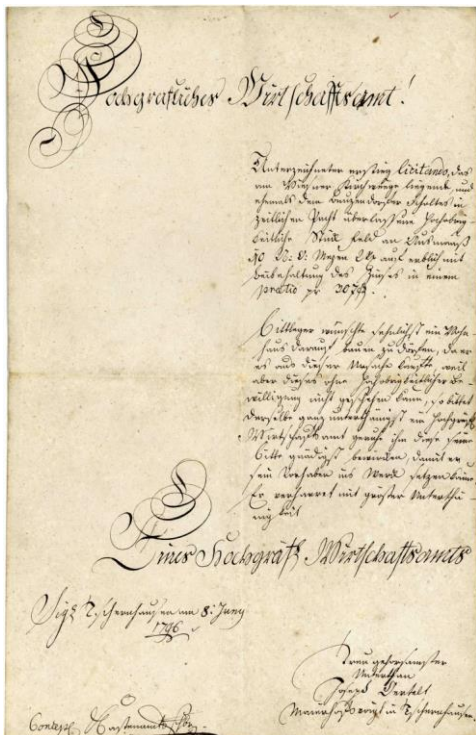 Hochgräfliches Wirtschaffts amt!
Unterzeichneter erstieg licitando, das
am Wiesner Kirchweege liegende, und
ehemals dem Scholtes in
zeitlichen Pacht überlassene
Stük feld an Ausmaaß
auf erblich mit
beibehaltung des Zinses in einem
pretio pr 307
Bittleger wünschte sehnlichst ein Wohn-
haus darauf bauen zu dörfen, da er
es aus dieser Ursache kaufte, weil
aber dieses ohne hochobrigkeitlicher be
willigung nicht geschehen kann, so bittet
derselbe ganz unterthänigst ein Hochgräfl
Wirtschaftsamt geruhe ihm diese seine
bitte gnädigst bewirken, damit er
sein Vorhaben ins Werk setzen könne
Er verharret mit gröster Unterthä
nigkeit
Eines Hochgräfl Wirtschaftsamts
Sigl Tschernhausen am 8: Juny
1796
Treu gehorsamster
Unterthan
Joseph
in Tschernhausen